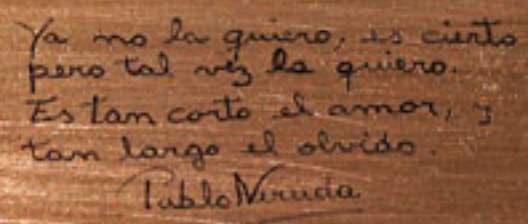 Ya no la quiero, es cierto
pero tal vez la quiero.
Es tan corto el amor, y
tan largo el olvido.
Pablo Neruda